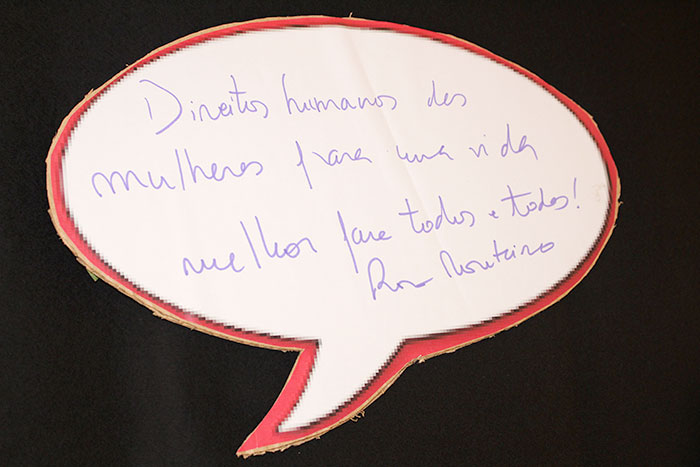 Direitos humanos das
mulheres para uma vida
melhor para todos e todas!
Rosa Monteiro